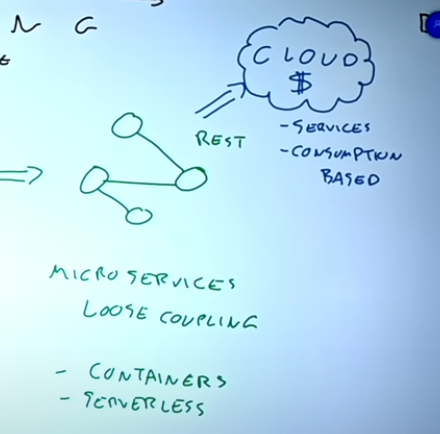 N G
CLOUD
$
REST
- SERVICES
- CONSUMPTION
BASED
MICROSERVICES
LOOSE COUPLING
- CONTAINERS
- SERVERLESS